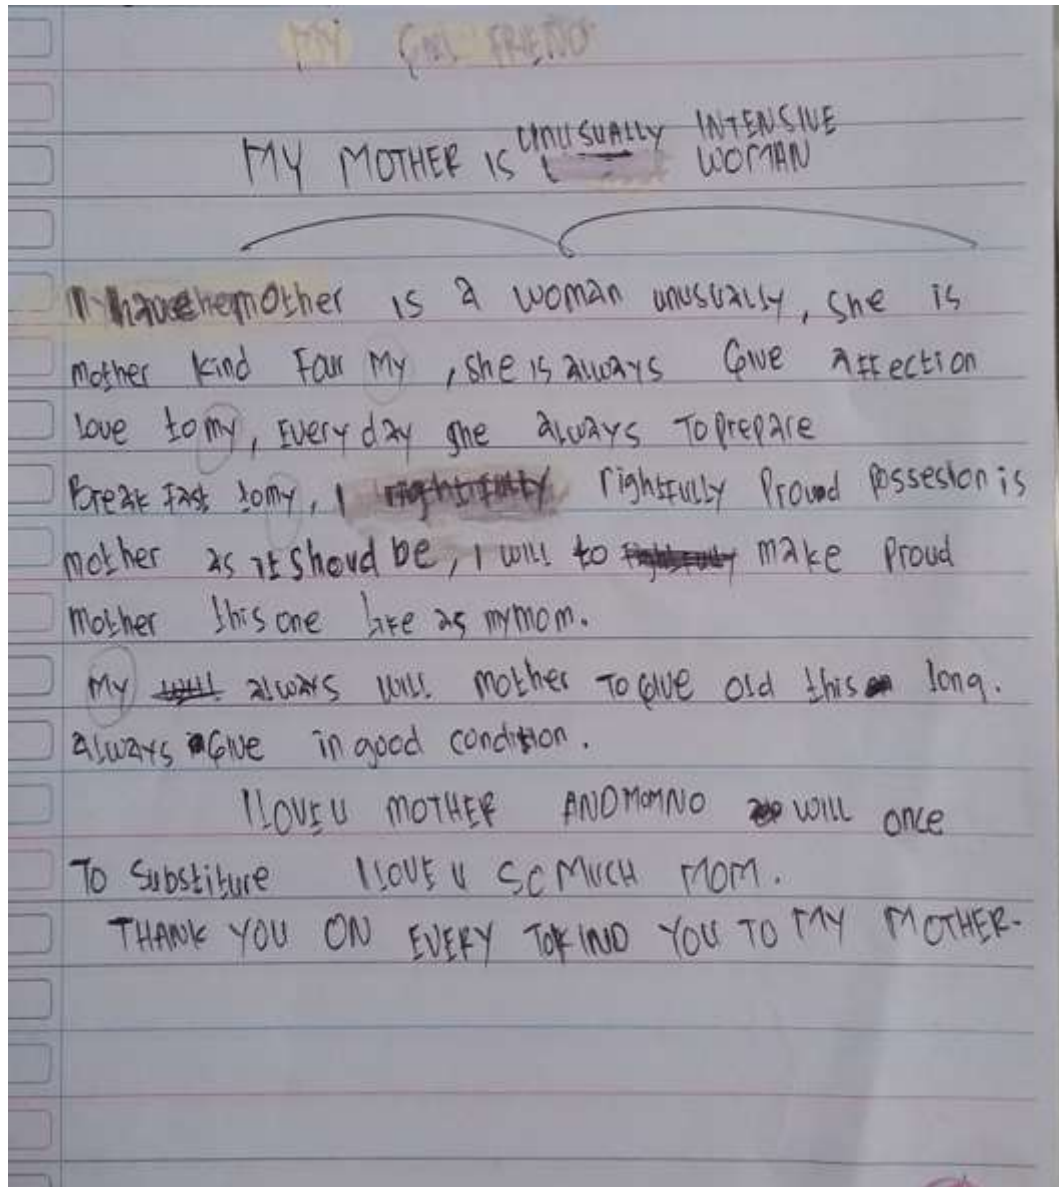 MY GIRL FRIEND
UNUSUALLY INTENSIVE
MY MOTHER IS WOMAN
mother is a woman unusually, she is
mother kind Four My, she is always Give Affection
love to my, Every day she always To prepare
Breakfast to my, I rightfully rightfully Proud Possesion is
mother as it shoud be, I will to make Proud
Mother this one life as my mom.
My will always will mother To give old this long.
always Give in good condition.
I LOVE U MOTHER AND MOM NO WILL once
To Substiture I LOVE U SO MUCH MOM.
THANK YOU ON EVERY TO KIND YOU TO MY MOTHER.